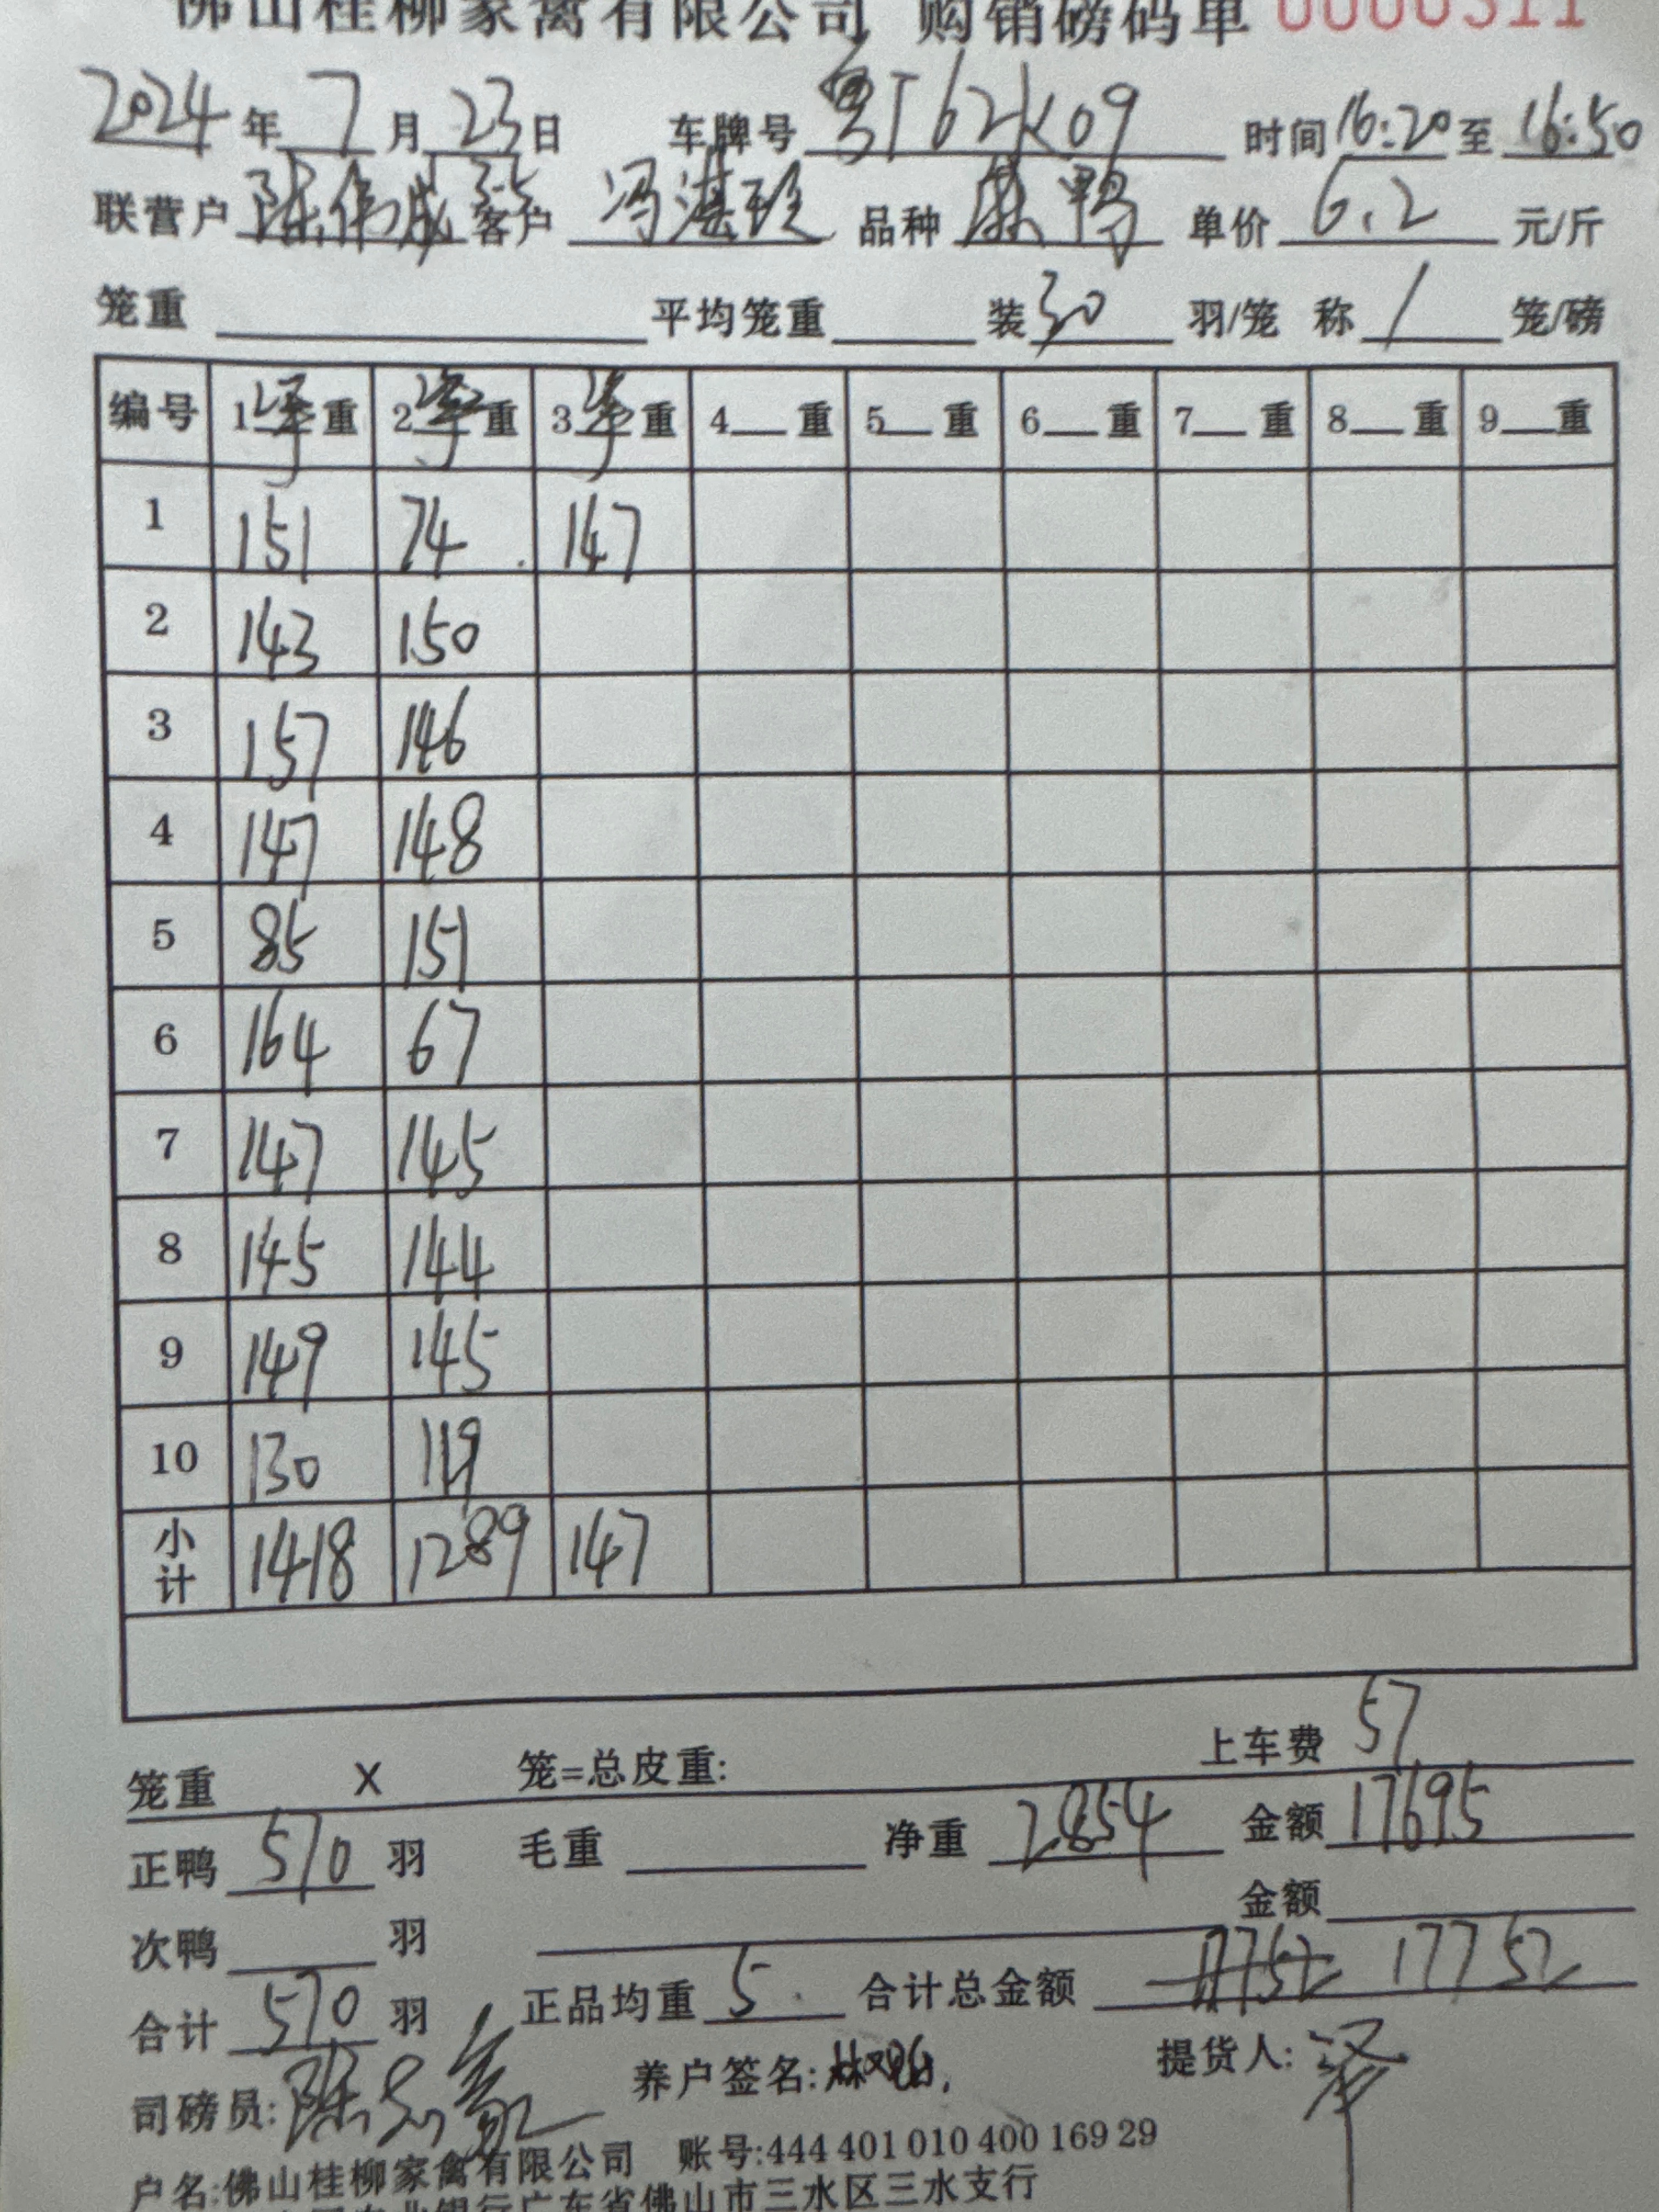 佛山桂柳家禽有限公司 购销磅码单 0000311
2024 年 7 月 23 日 车牌号 粤T62K09 时间 16:20 至 16:50
联营户 陈伟成 客户 冯湛 品种 麻鸭 单价 6.2 元/斤
笼重 平均笼重 装 30 羽/笼 称 1 笼/磅
编号 1 重 2 重 3 重 4 重 5 重 6 重 7 重 8 重 9 重
1 151 74 147
2 143 150
3 157 146
4 147 148
5 85 151
6 164 67
7 147 145
8 145 144
9 149 145
10 130 119
小计 1418 1289 147
上车费 57
笼重 X 笼=总皮重:
正鸭 570 羽 毛重 净重 2854 金额 17695
金额
次鸭 羽
合计 570 羽 正品均重 5 合计总金额 17752 17752
司磅员: 陈 养户签名: 提货人: 泽
户名:佛山桂柳家禽有限公司 账号:444 401 010 400 169 29
农业银行广东省佛山市三水区三水支行